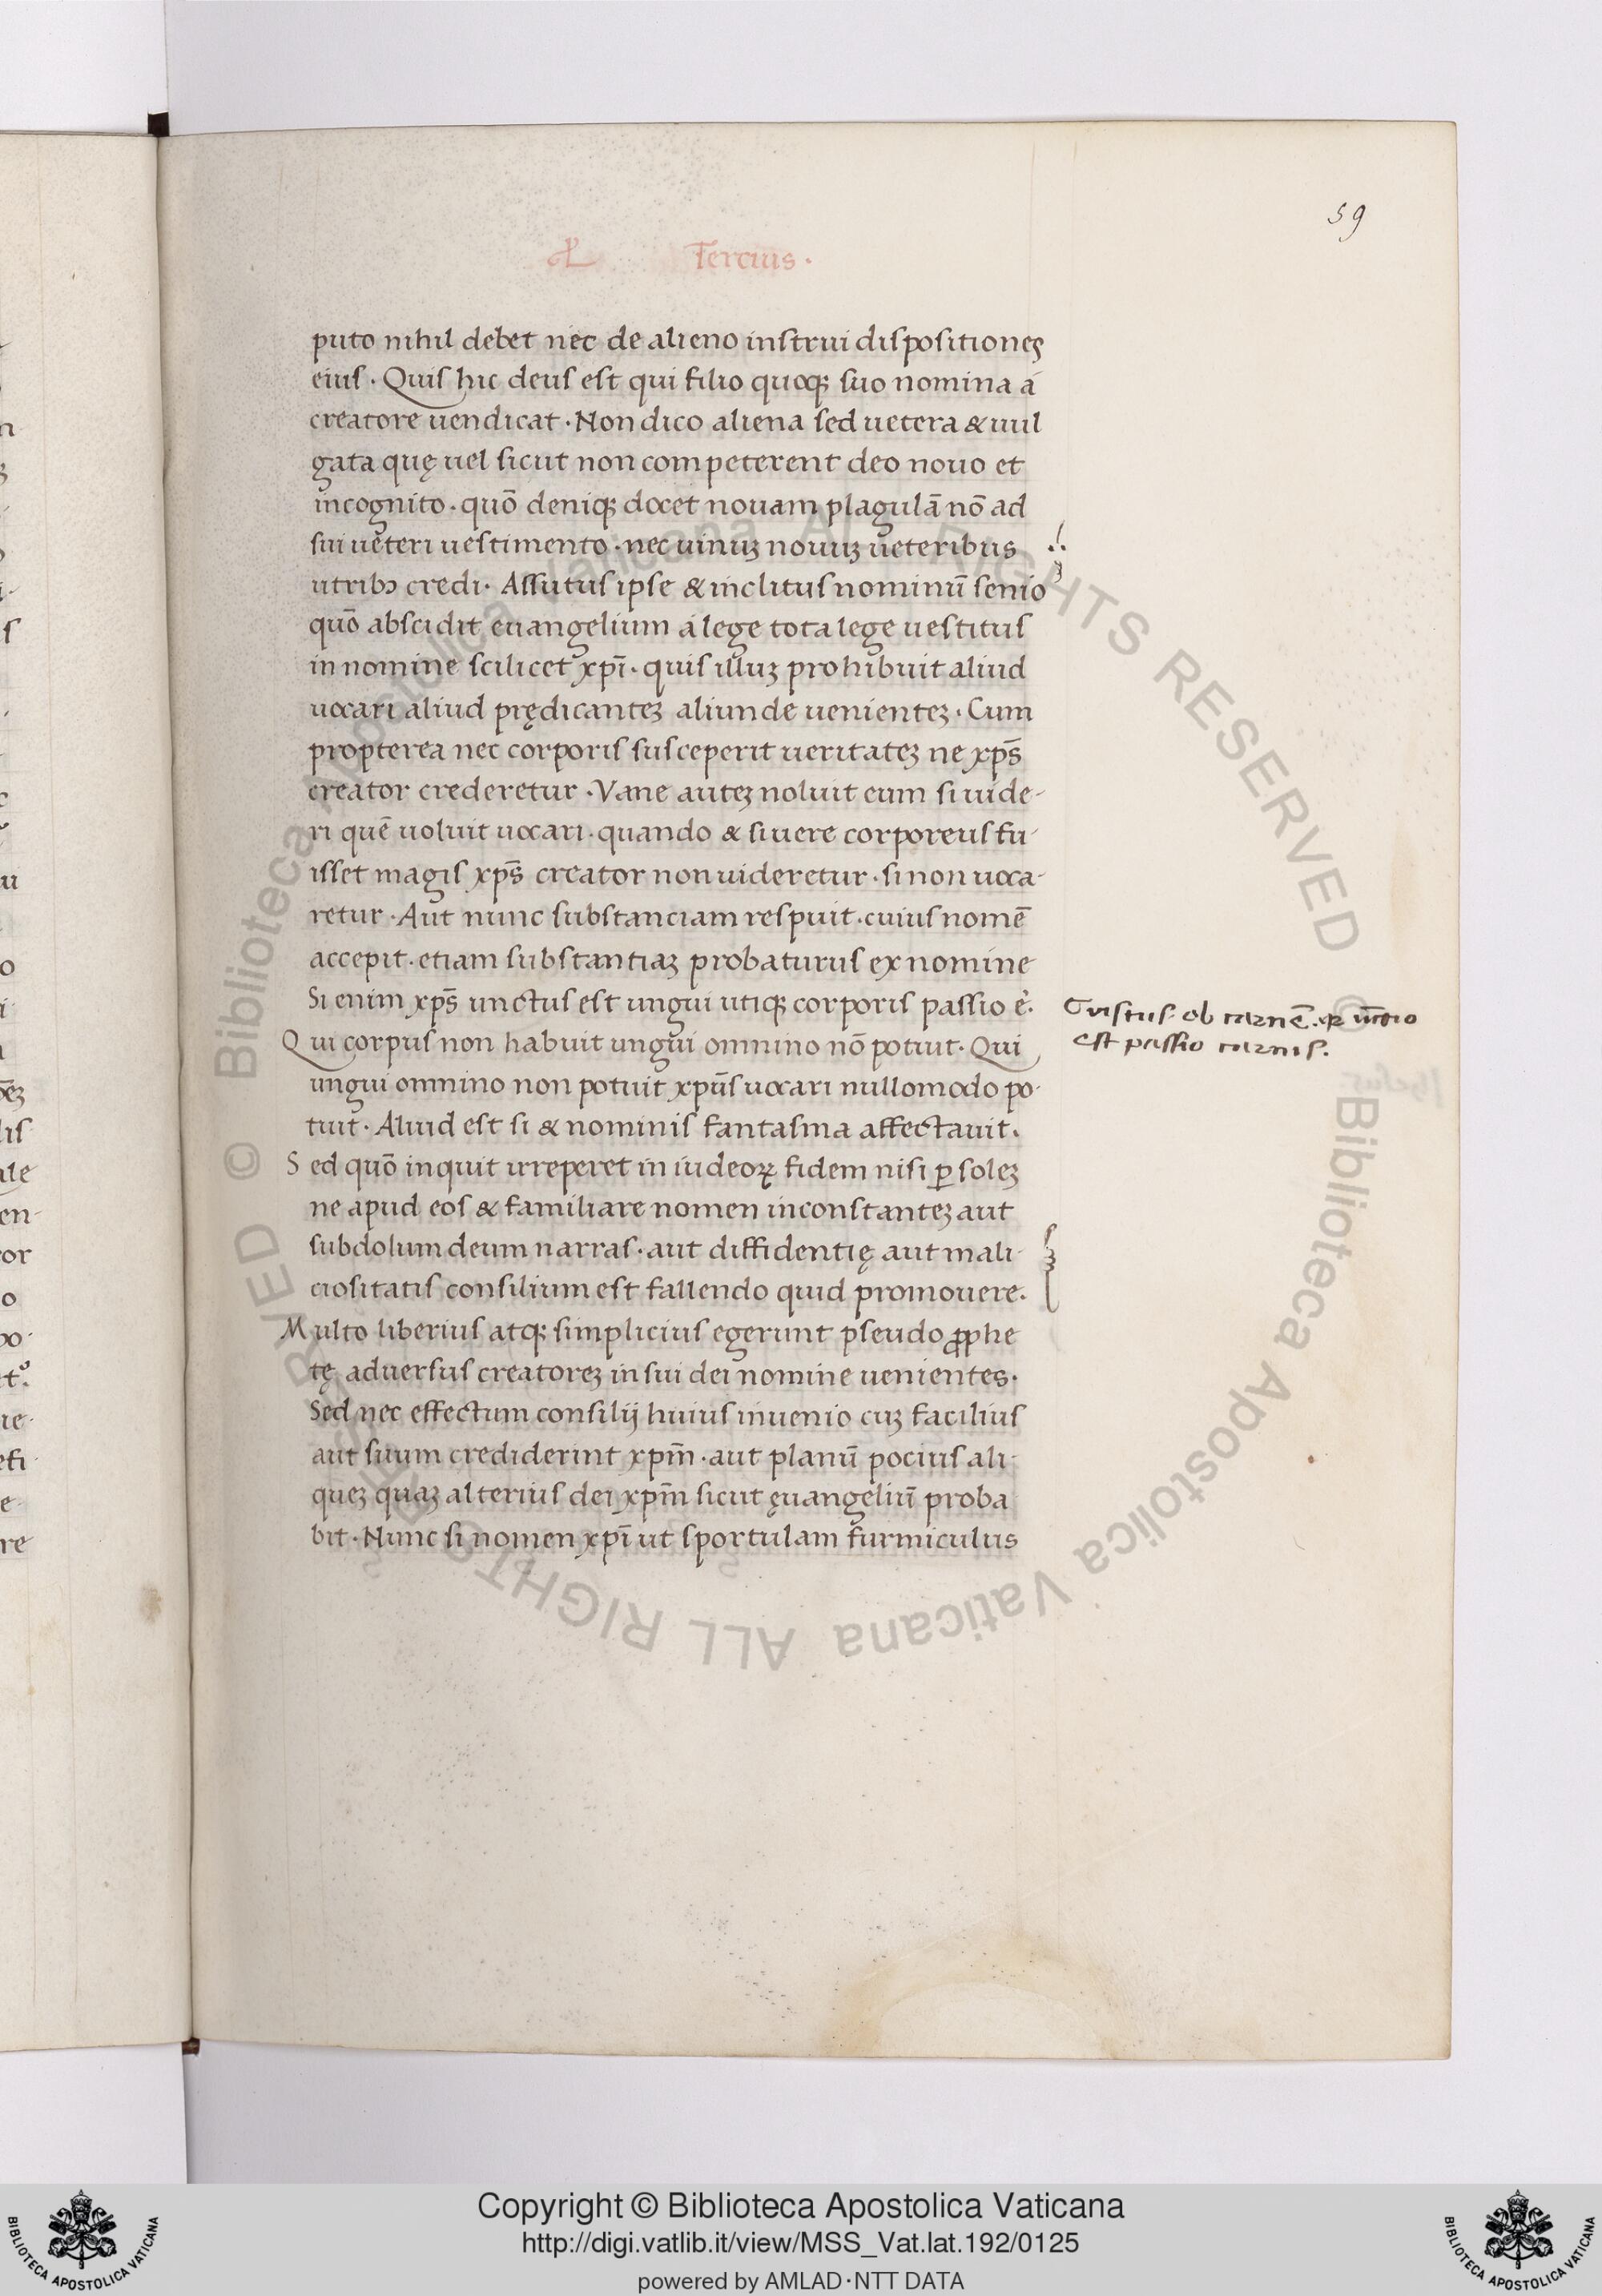 59
Tercius ·
puto nihil debet nec de alieno instrui dispositiones
eius · Quis hic deus est qui filio quoqꝫ suo nomina á
creatore uendicat · Non dico aliena sed uetera & uul
gata quę uel sicut non competerent deo nouo et
incognito · quō deniqꝫ docet nouam plagulā nō ad
sui ueteri uestimento · nec uinuꝫ nouuꝫ ueteribus
utribꝰ credi · Assutus ipse & inclitus nominū senio
quō abscidit euangelium á lege tota lege uestitus
in nomine scilicet xp̄i · quis illuꝫ prohibuit aliud
uocari aliud prędicanteꝫ aliunde uenienteꝫ · Cum
propterea nec corporis susceperit ueritateꝫ ne xp̄s
creator crederetur · Vane auteꝫ noluit eum si uide-
ri quē uoluit uocari · quando & si uere corporeus fu-
isset magis xp̄s creator non uideretur · si non uoca-
retur · Aut nunc substanciam respuit · cuius nomē
accepit · etiam substantiaꝫ probaturus ex nomine
Si enim xp̄s unctus est ungui utiqꝫ corporis passio ē ·
Qui corpus non habuit ungui omnino nō potuit · Qui
ungui omnino non potuit xpūs uocari nullomodo po-
tuit · Aliud est si & nominis fantasma affectauit ·
Sed quō inquit irreperet in iudeoꝝ fidem nisi ꝑ soleꝫ
ne apud eos & familiare nomen inconstanteꝫ aut
subdolum deum narras · aut diffidentię aut mali-
ciositatis consilium est fallendo quid promouere ·
Multo liberius atqꝫ simplicius egerunt pseudo ꝓphe
tę aduersus creatoreꝫ in sui dei nomine uenientes ·
Sed nec effectum consilij huius inuenio cuꝫ facilius
aut suum crediderint xpm̄ · aut planū pocius ali-
queꝫ quaꝫ alterius dei xpm̄ sicut ęuangeliū proba
bit · Nunc si nomen xp̄i ut sportulam furniculus
ob carnē · unctio
est passio carnis ·
© Biblioteca Apostolica Vaticana ALL RIGHTS RESERVED © Biblioteca Apostolica Vaticana ALL RIGHTS RESERVED
Copyright © Biblioteca Apostolica Vaticana
http://digi.vatlib.it/view/MSS_Vat.lat.192/0125
powered by AMLAD·NTT DATA
BIBLIOTECA APOSTOLICA VATICANA
BIBLIOTECA APOSTOLICA VATICANA